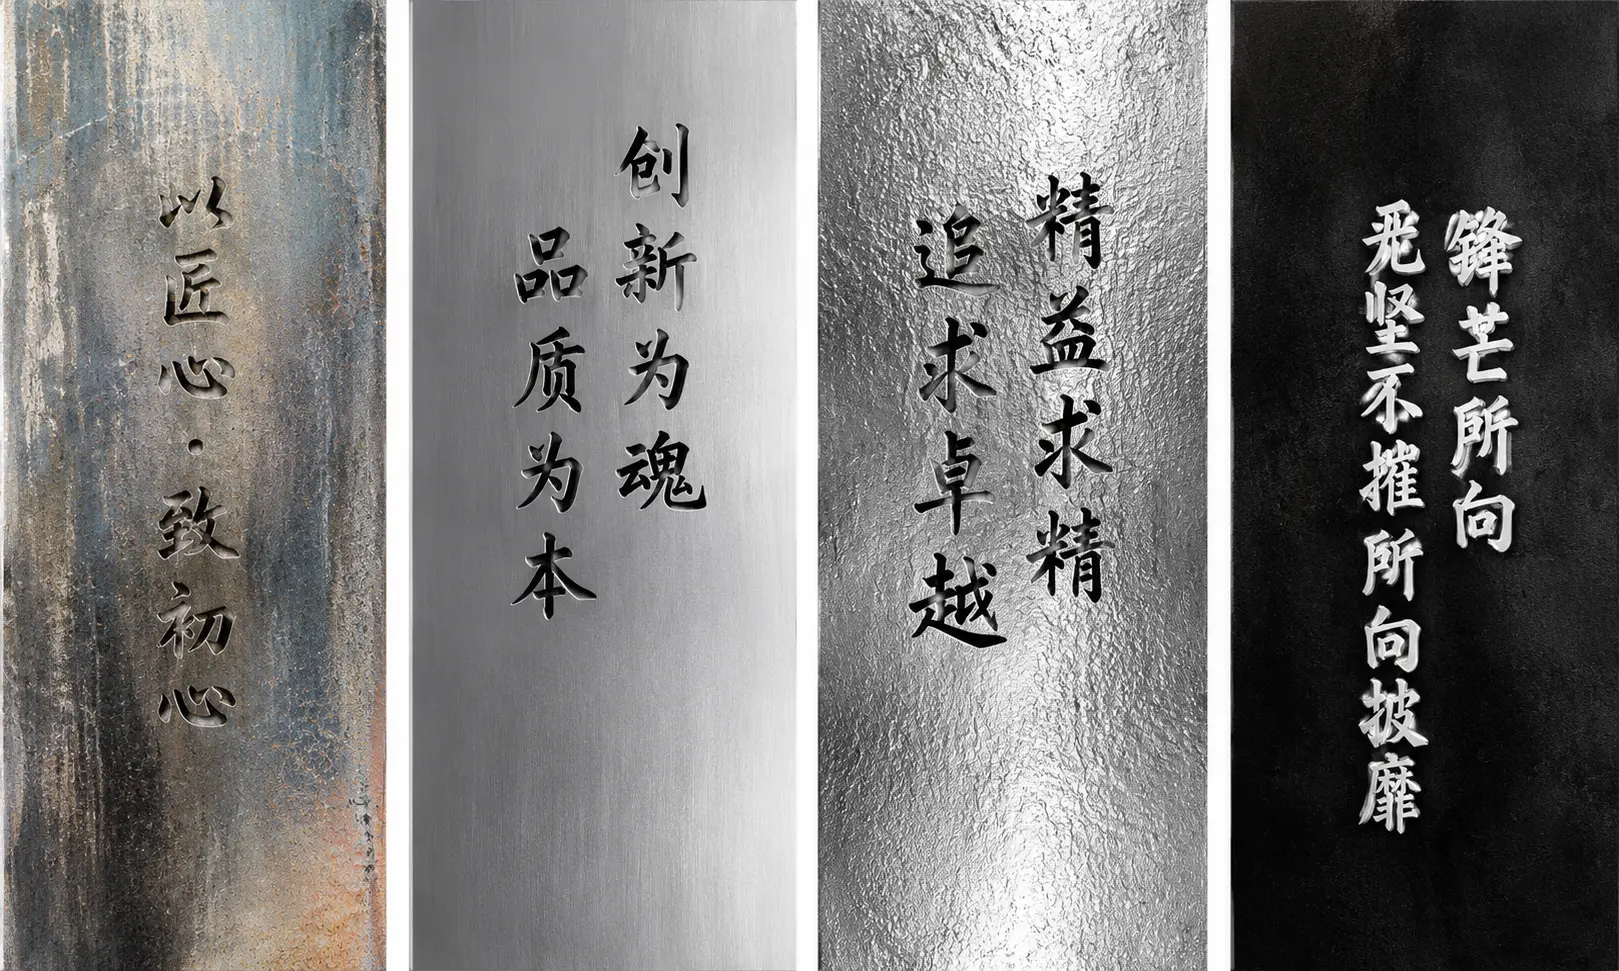 以匠心·致初心
创新为魂
品质为本
精益求精
追求卓越
锋芒所向
坚不摧所向披靡